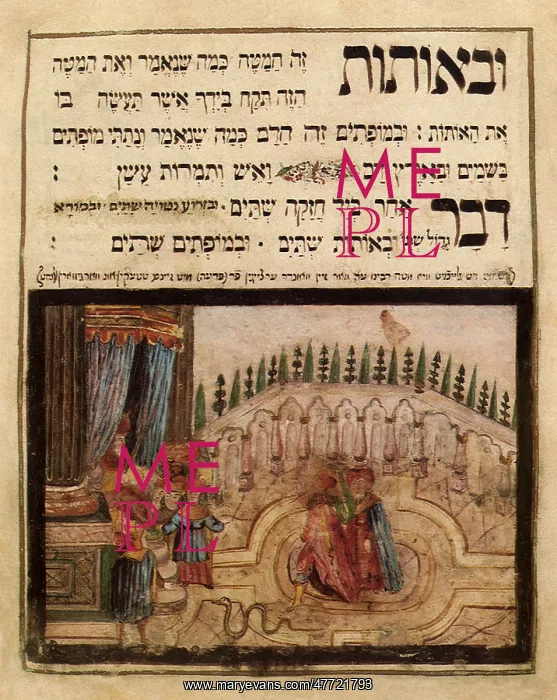 ובאותות זה המטה כמה שנאמר ואת המטה
הזה תקח בידך אשר תעשה בו
את האותות : ובמופתים זה הדם כמה שנאמר ונתתי מופתים
בשמים ובארץ דם ואש ותמרות עשן :
דבר אחר ביד חזקה שתים · ובזרוע נטויה שתים · ובמורא
גדול שתים ובאותות שתים · ובמופתים שתים :
ME
PL
ME
PL
www.maryevans.com/47721793